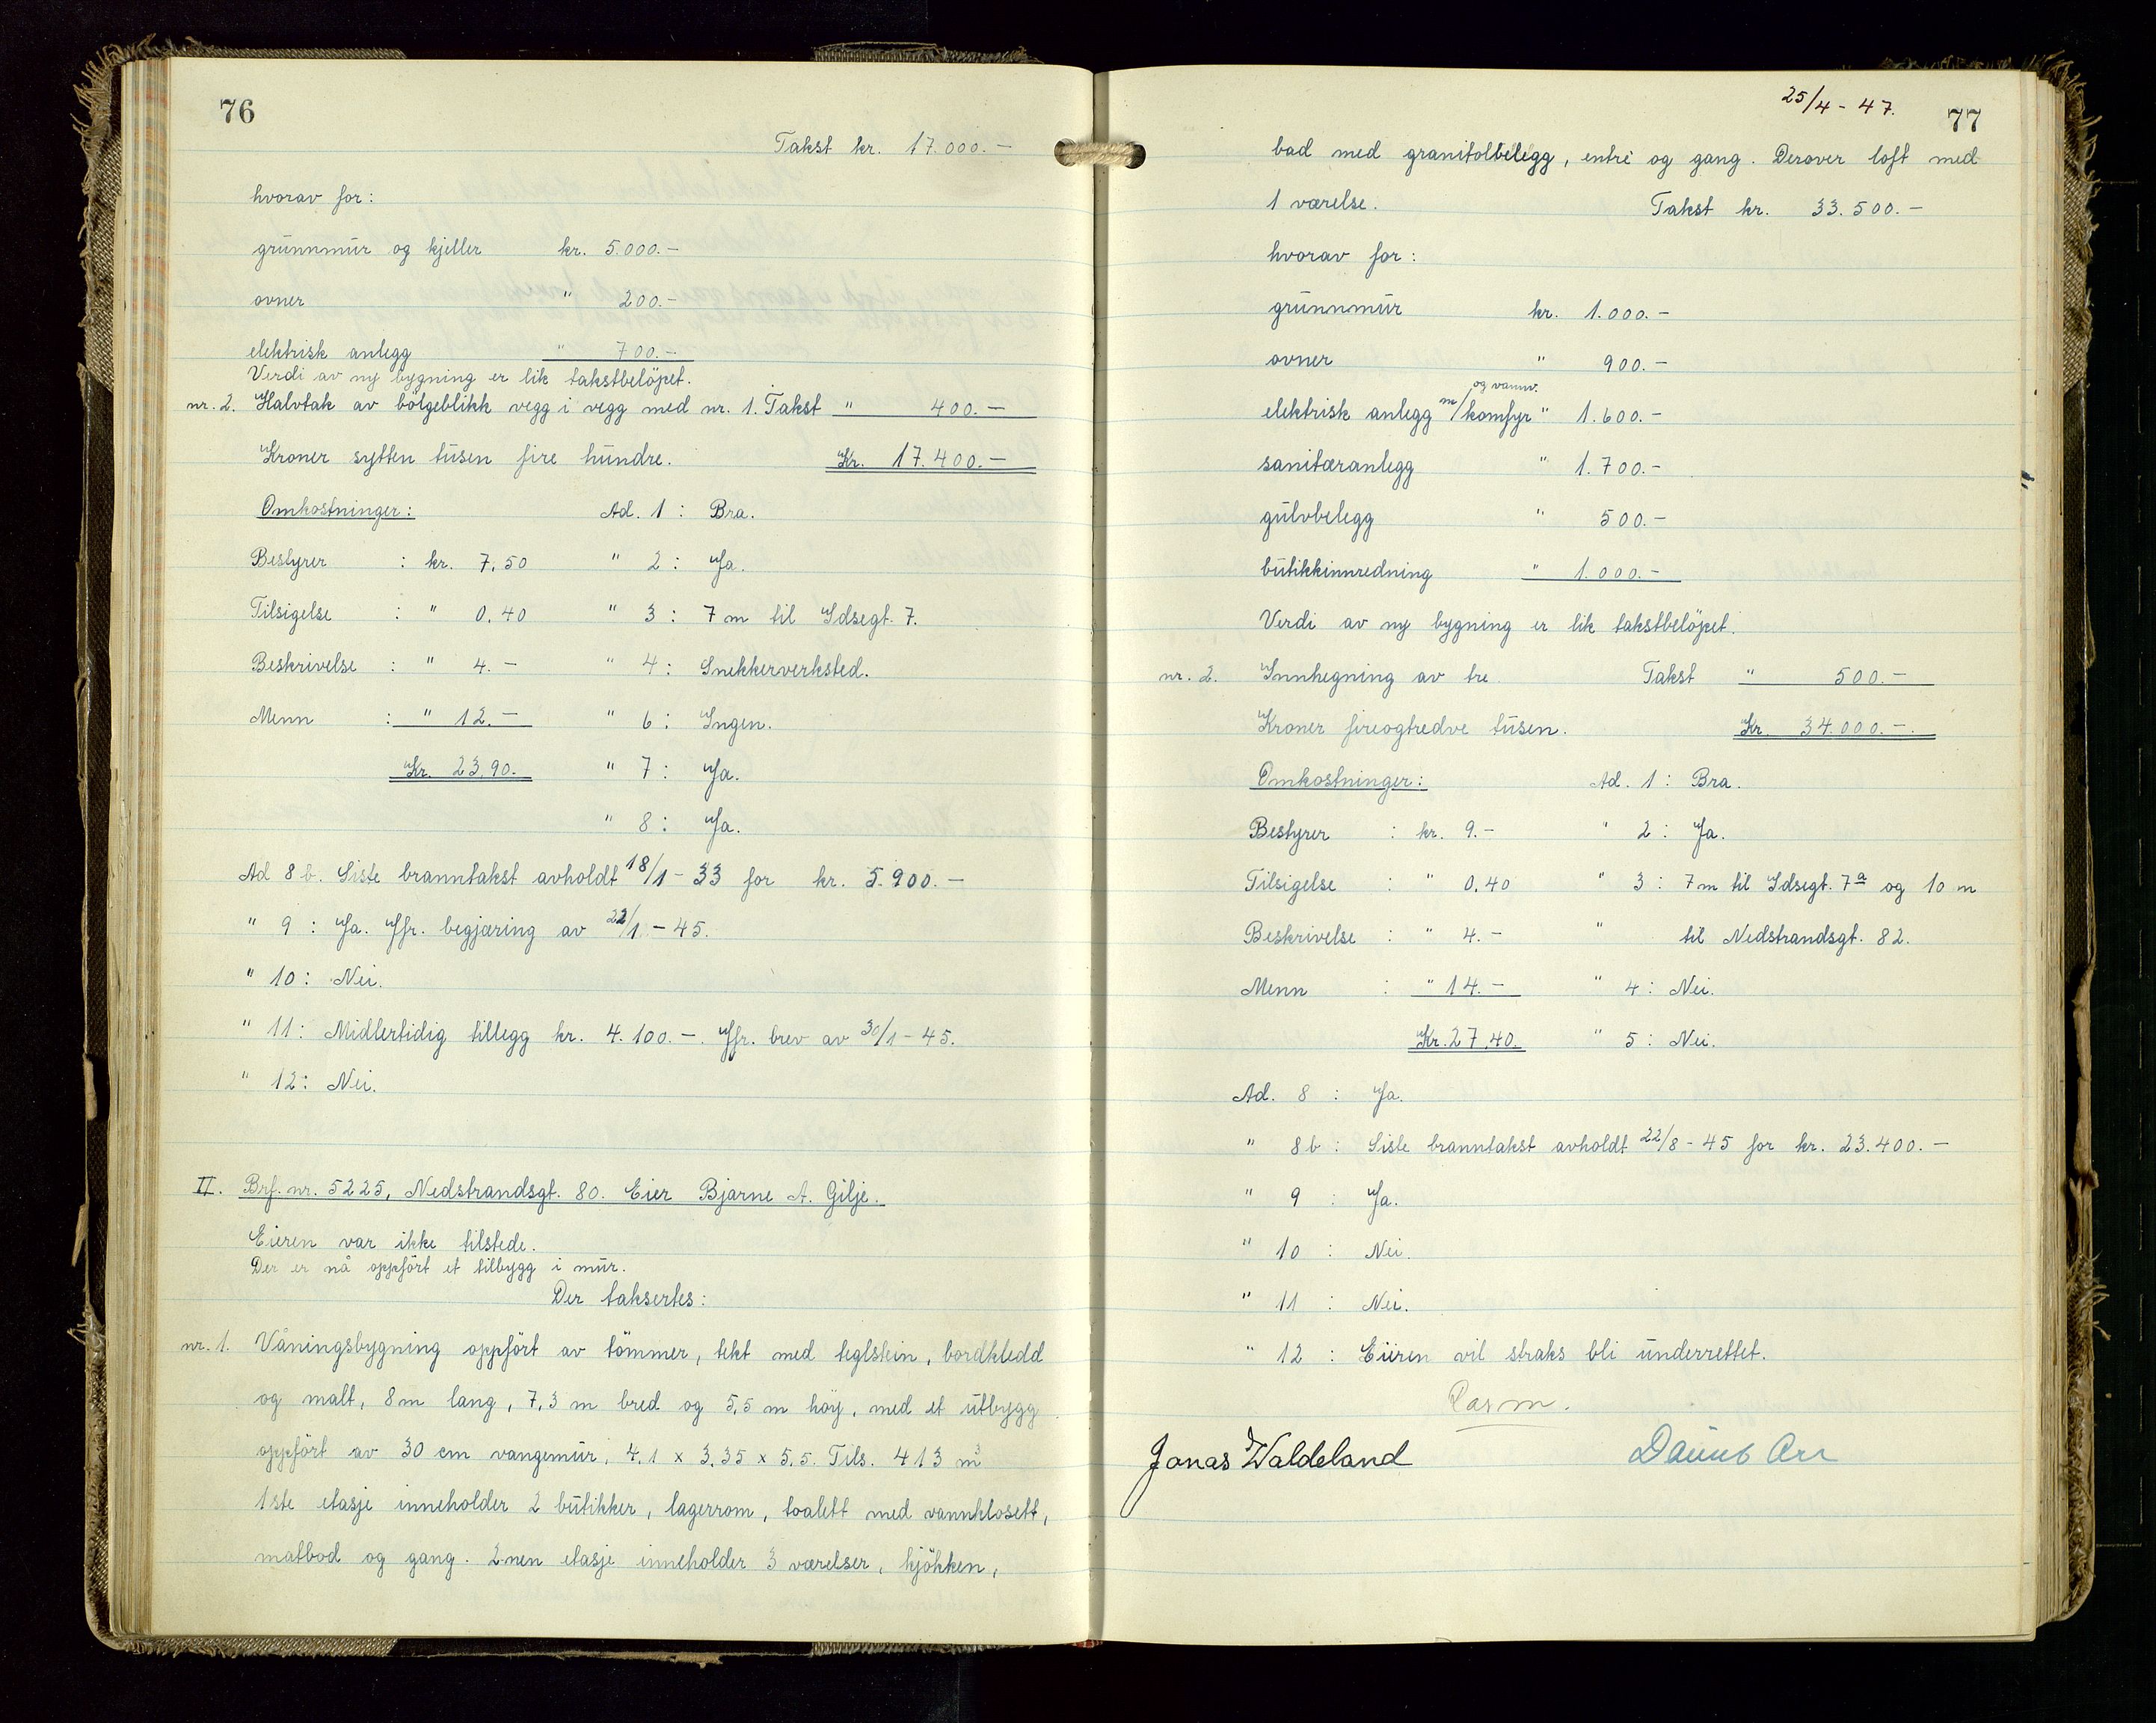 76
Takst kr. 17.000.-
hvorav for:
grunnmur og kjeller kr. 5.000.-
ovner " 200.-
elektrisk anlegg " 700.-
Verdi av ny bygning er lik takstbelöpet.
nr. 2. Halvtak av bölgeblikk vegg i vegg med nr. 1. Takst " 400.-
Kroner sytten tusen fire hundre. Kr. 17.400.-
Omkostninger: Ad. 1 : Bra.
Bestyrer : kr. 7,50 " 2 : Ja.
Tilsigelse : " 0,40 " 3 : 7 m til Idsegt. 7.
Beskrivelse : " 4.- " 4 : Snekkerverksted.
Menn : " 12.- " 6 : Ingen.
Kr. 23,90. " 7 : Ja.
" 8 : Ja.
Ad 8 b. Siste branntakst avholdt 18/1 - 33 for kr. 5.900.-
" 9 : Ja. Jfr. begjæring av 22/1 - 45.
" 10 : Nei.
" 11 : Midlertidig tillegg kr. 4.100.-. Jfr. brev av 30/1 - 45.
" 12 : Nei.
II. Brf. nr. 5225, Nedstrandsgt. 80. Eier Bjarne A. Gilje.
Eieren var ikke tilstede.
Der er nå oppfört et tilbygg i mur.
Der taksertes:
nr. 1. Våningsbygning oppfört av tömmer, tekt med teglstein, bordkledd
og malt, 8 m lang, 7,3 m bred og 5,5 m höy, med et utbygg
oppfört av 30 cm vangemur, 4,1 x 3,35 x 5,5. Tils. 413 m³
1ste etasje inneholder 2 butikker, lagerrom, toalett med vannklosett,
matbod og gang. 2nen etasje inneholder 3 værelser, kjökken,
25/4 - 47. 77
bad med granitolbelegg, entré og gang. Derover loft med
1 værelse. Takst kr. 33.500.-
hvorav for:
grunnmur kr. 1.000.-
ovner " 900.-
og vannv.
elektrisk anlegg m/komfyr " 1.600.-
sanitæranlegg " 1.700.-
gulvbelegg " 500.-
butikkinnredning " 1.000.-
Verdi av ny bygning er lik takstbelöpet.
nr. 2. Innhegning av tre. Takst " 500.-
Kroner fireogtredve tusen. Kr. 34.000.-.
Omkostninger: Ad. 1 : Bra.
Bestyrer : kr. 9.- " 2 : Ja.
Tilsigelse : " 0,40 " 3 : 7 m til Idsegt. 7a og 10 m
Beskrivelse : " 4.- " til Nedstrandsgt. 82.
Menn : " 14.- " 4 : Nei.
Kr. 27,40. " 5 : Nei.
Ad. 8 : Ja.
" 8 b : Siste branntakst avholdt 22/8 - 45 for kr. 23.400.-
" 9 : Ja.
" 10 : Nei.
" 11 : Nei.
" 12 : Eieren vil straks bli underrettet.
Jonas Waldeland